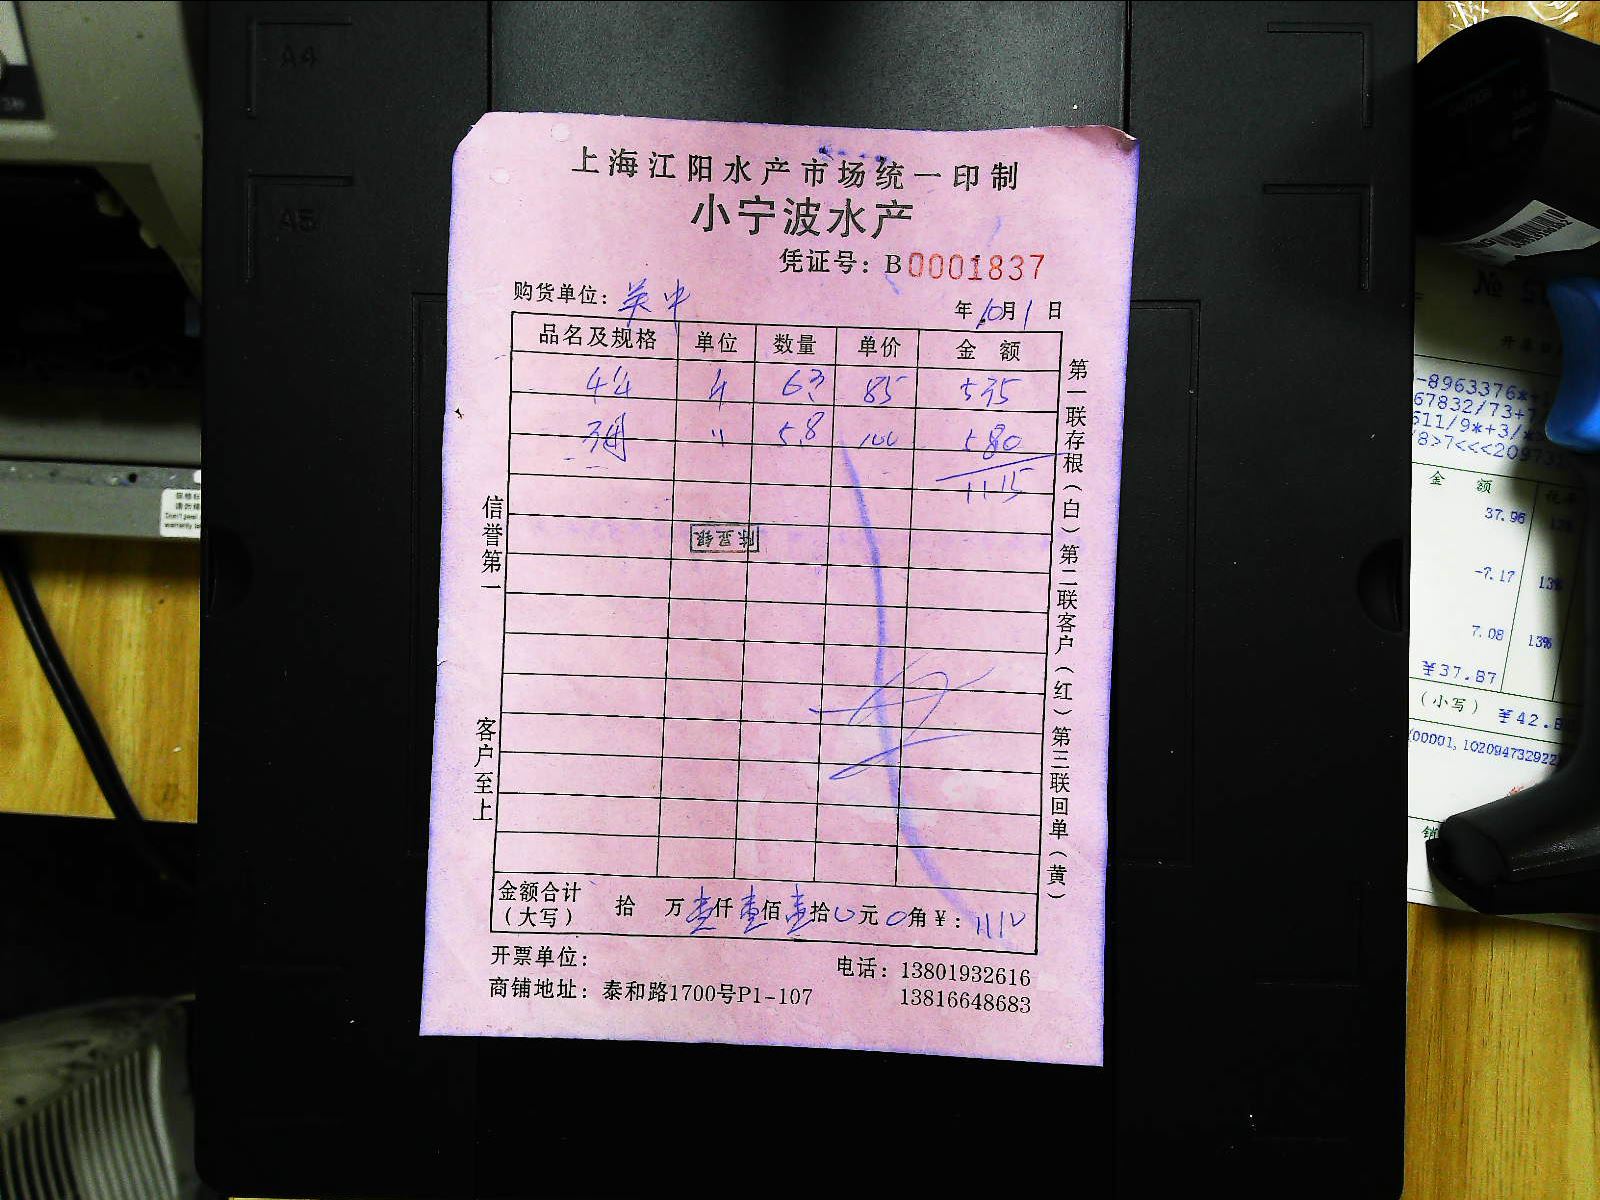 上海江阳水产市场统一印制
小宁波水产
凭证号：B0001837
购货单位：
年10月1日
品名及规格 单位 数量 单价 金 额
63 85 535
〃 5.8 100 580
1115
陈亚银
信誉第一
客户至上
第一联存根（白）第二联客户（红）第三联回单（黄）
金额合计（大写） 拾 万壹仟壹佰壹拾0元0角¥：1110
开票单位：
电话：13801932616
商铺地址：泰和路1700号P1-107
13816648683
A4
A5
-8963376*
67832/73+
611/9*+3/*
8>7<<<20973
金 额
37.96
-7.17 13%
7.08 13%
¥37.87
（小写） ¥42.8
00001,102094732922